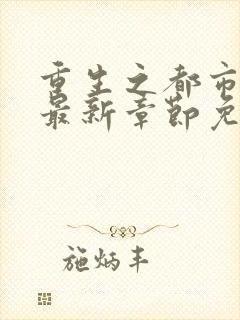 重生之都市
最新章节免
施炳丰